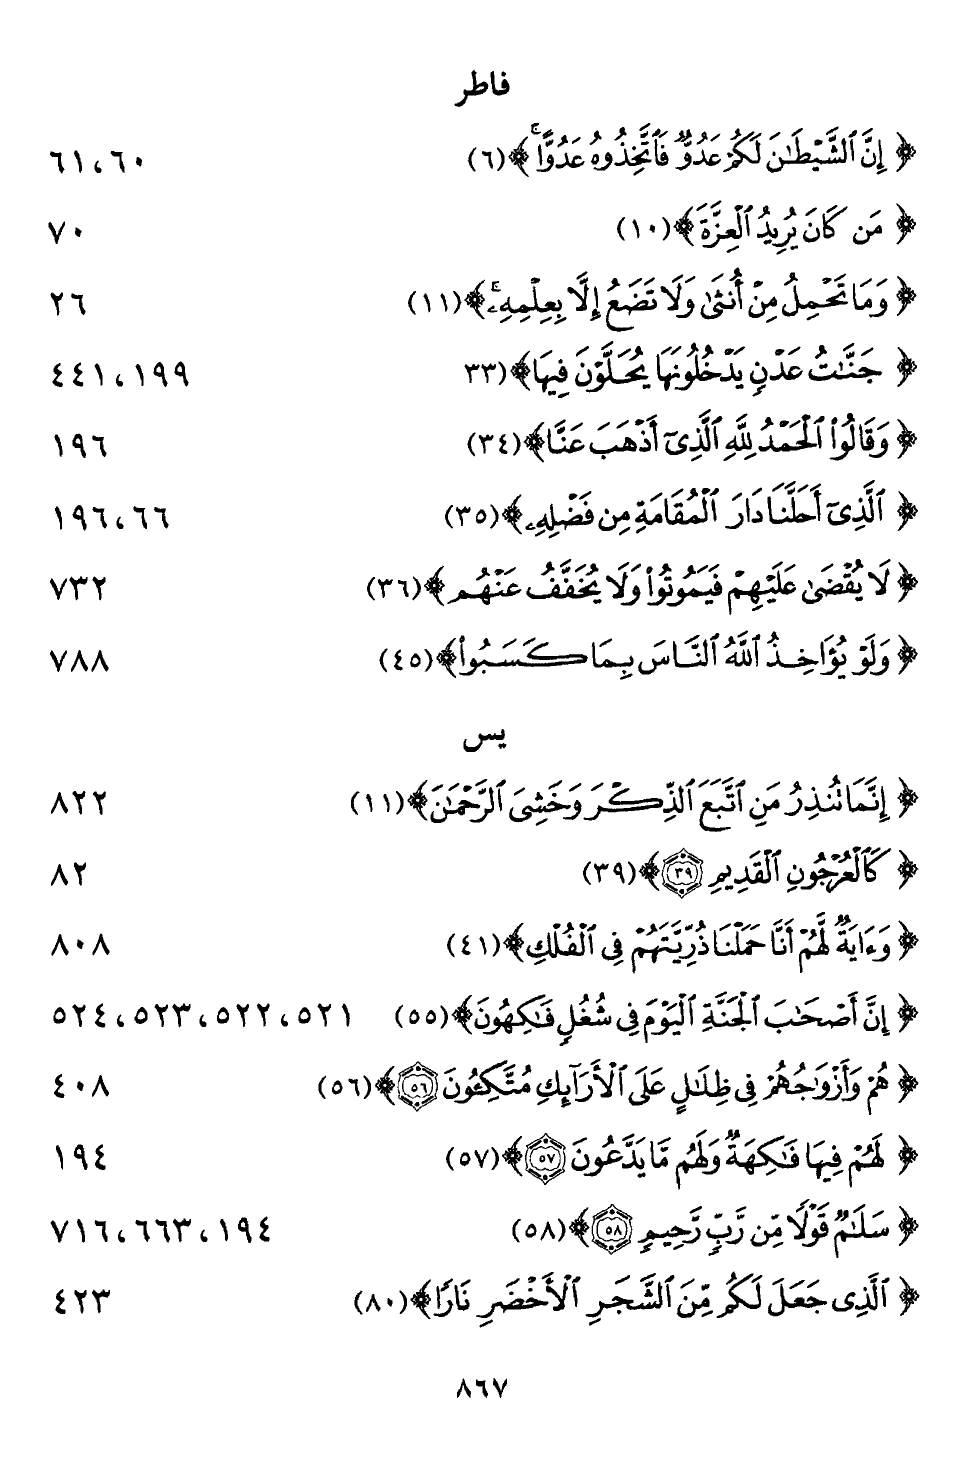 فاطر
﴿ إِنَّ ٱلشَّيْطَٰنَ لَكُمْ عَدُوٌّ فَٱتَّخِذُوهُ عَدُوًّا ۚ ﴾ (٦) ٦٠، ٦١
﴿ مَن كَانَ يُرِيدُ ٱلْعِزَّةَ ﴾ (١٠) ٧٠
﴿ وَمَا تَحْمِلُ مِنْ أُنثَىٰ وَلَا تَضَعُ إِلَّا بِعِلْمِهِۦ ۚ ﴾ (١١) ٢٦
﴿ جَنَّٰتُ عَدْنٍ يَدْخُلُونَهَا يُحَلَّوْنَ فِيهَا ﴾ (٣٣ ١٩٩، ٤٤١
﴿ وَقَالُوا۟ ٱلْحَمْدُ لِلَّهِ ٱلَّذِىٓ أَذْهَبَ عَنَّا ﴾ (٣٤) ١٩٦
﴿ ٱلَّذِىٓ أَحَلَّنَا دَارَ ٱلْمُقَامَةِ مِن فَضْلِهِۦ ﴾ (٣٥) ٦٦، ١٩٦
﴿ لَا يُقْضَىٰ عَلَيْهِمْ فَيَمُوتُوا۟ وَلَا يُخَفَّفُ عَنْهُم ﴾ (٣٦) ٧٣٢
﴿ وَلَوْ يُؤَاخِذُ ٱللَّهُ ٱلنَّاسَ بِمَا كَسَبُوا۟ ﴾ (٤٥) ٧٨٨
يس
﴿ إِنَّمَا تُنذِرُ مَنِ ٱتَّبَعَ ٱلذِّكْرَ وَخَشِىَ ٱلرَّحْمَٰنَ ﴾ (١١) ٨٢٢
﴿ كَٱلْعُرْجُونِ ٱلْقَدِيمِ ٣٩ ﴾ (٣٩) ٨٢
﴿ وَءَايَةٌ لَّهُمْ أَنَّا حَمَلْنَا ذُرِّيَّتَهُمْ فِى ٱلْفُلْكِ ﴾ (٤١) ٨٠٨
﴿ إِنَّ أَصْحَٰبَ ٱلْجَنَّةِ ٱلْيَوْمَ فِى شُغُلٍ فَٰكِهُونَ ﴾ (٥٥) ٥٢١، ٥٢٢، ٥٢٣، ٥٢٤
﴿ هُمْ وَأَزْوَٰجُهُمْ فِى ظِلَٰلٍ عَلَى ٱلْأَرَآئِكِ مُتَّكِـُٔونَ ٥٦ ﴾ (٥٦) ٤٠٨
﴿ لَهُمْ فِيهَا فَٰكِهَةٌ وَلَهُم مَّا يَدَّعُونَ ٥٧ ﴾ (٥٧) ١٩٤
﴿ سَلَٰمٌ قَوْلًا مِّن رَّبٍّ رَّحِيمٍ ٥٨ ﴾ (٥٨) ١٩٤، ٦٦٣، ٧١٦
﴿ ٱلَّذِى جَعَلَ لَكُم مِّنَ ٱلشَّجَرِ ٱلْأَخْضَرِ نَارًا ﴾ (٨٠) ٤٢٣
٨٦٧